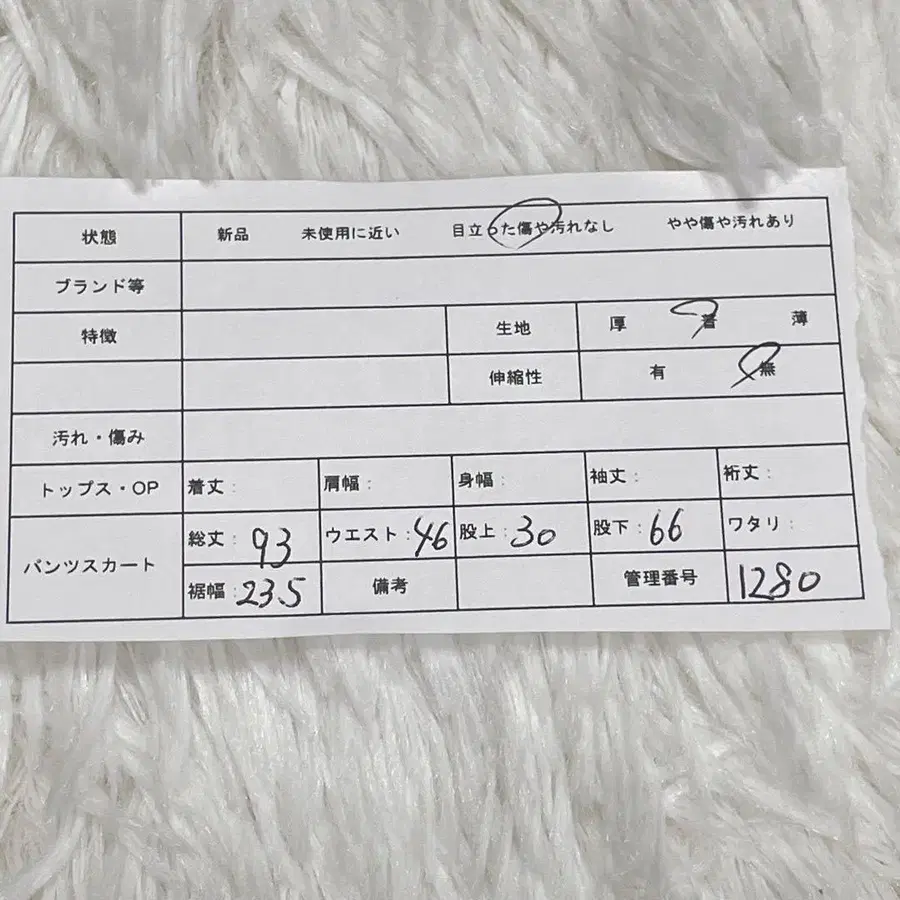 状態 新品 未使用に近い 目立った傷や汚れなし やや傷や汚れあり
ブランド等
特徴 生地 厚 普 薄
伸縮性 有 無
汚れ・傷み
トップス・OP 着丈: 肩幅: 身幅: 袖丈: 裄丈:
パンツスカート 総丈: 93 ウエスト: 46 股上: 30 股下: 66 ワタリ:
裾幅: 23.5 備考 管理番号 1280